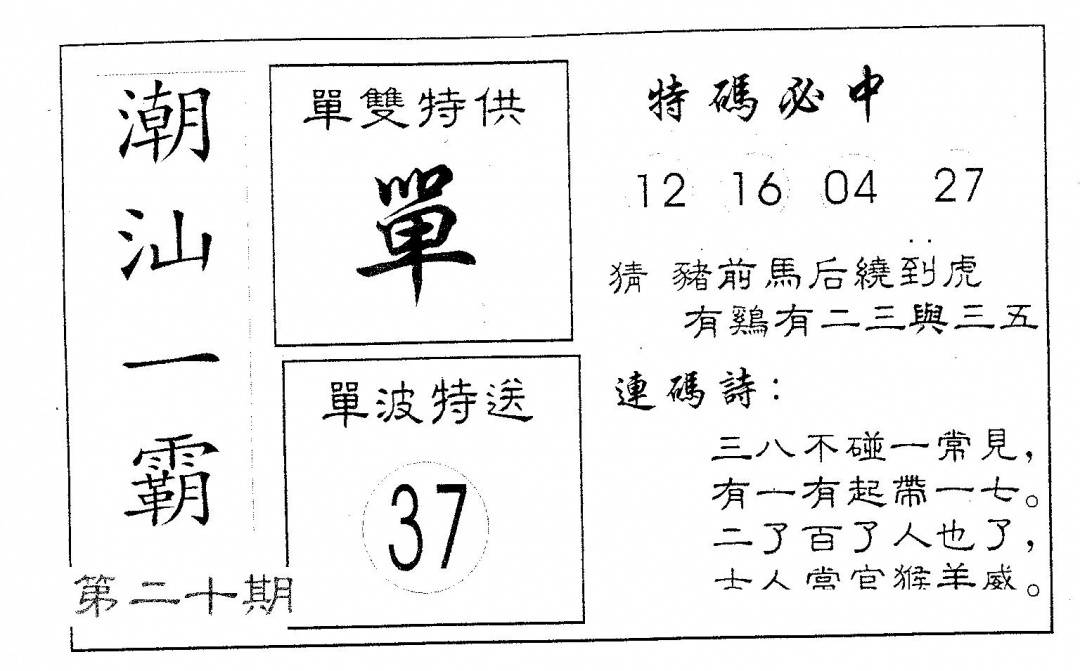 潮汕一霸
第二十期
單雙特供
單
單波特送
37
特碼必中
12 16 04 27
猜 豬前馬后繞到虎
有鷄有二三與三五
連碼詩：
三八不碰一常見，
有一有起帶一七。
二了百了人也了，
士人當官猴羊威。